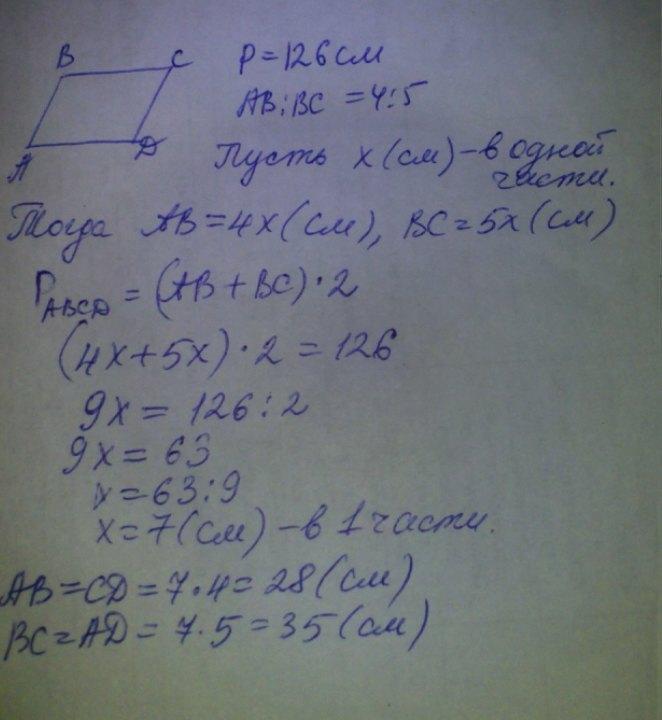 B C
A D
P=126см
AB:BC =4:5
Пусть x(см)-в одной
части.
Тогда AB=4x(см), BC=5x(см)
P_ABCD = (AB+BC)·2
(4x+5x)·2=126
9x= 126:2
9x=63
x=63:9
x=7(см)-в 1 части.
AB=CD=7·4=28(см)
BC=AD=7·5=35(см)